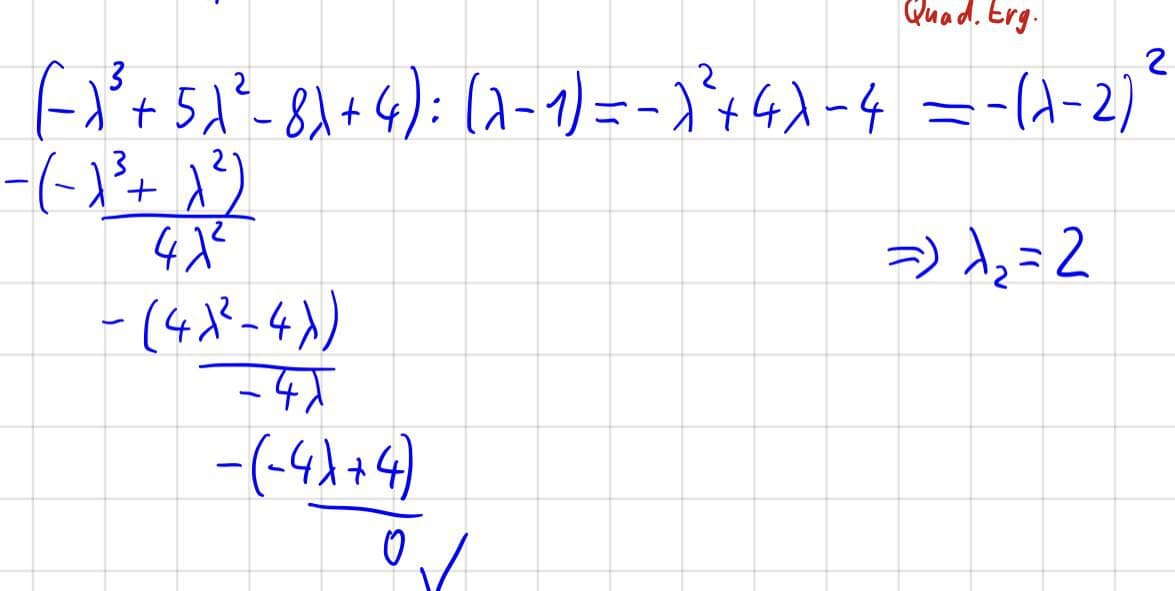 Quad. Erg.
(-λ³ + 5λ² - 8λ + 4) : (λ - 1) = -λ² + 4λ - 4 = -(λ - 2)²
-(-λ³ + λ²)
4λ²
⇒ λ₂ = 2
-(4λ² - 4λ)
-4λ
-(-4λ + 4)
0 ✓